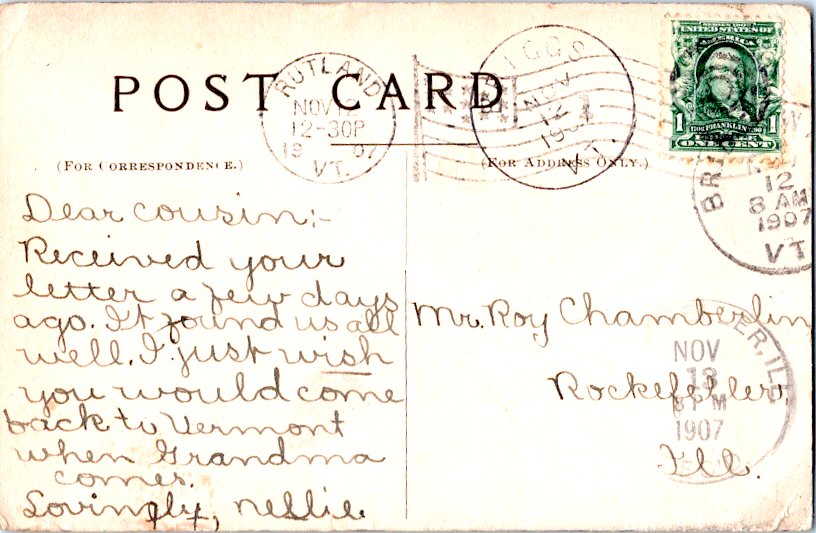 POST CARD
RUTLAND
NOV 12
12-30P
1907
VT.
RIGGS
NOV
12
190
VT.
SERIES 1902
UNITED STATES OF
AMERICA
1706 FRANKLIN 1790
1 1
ONE CENT
BR
12
8 AM
1907
VT
(FOR CORRESPONDENCE.)
(FOR ADDRESS ONLY.)
Dear Cousin:-
Received your
letter a few days
ago. It found us all
well. I just wish
you would come
back to Vermont
when Grandma
comes.
Lovingly, Nellie.
Mr. Roy Chamberlin
Rockefeller.
Ill.
ER, ILL
NOV
13
8 PM
1907